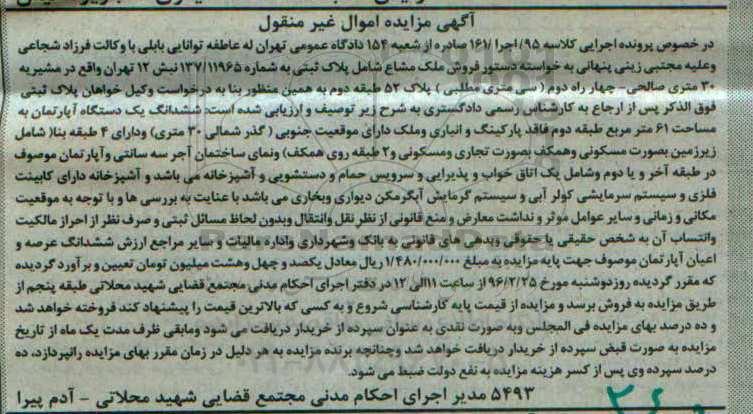 آگهی مزایده اموال غیر منقول
در خصوص پرونده اجرایی کلاسه ۹۵/اجرا/۱۶۱ صادره از شعبه ۱۵۴ دادگاه عمومی تهران له عاطفه توانایی بابلی با وکالت فرزاد شجاعی
وعلیه مجتبی زینی پنهانی به خواسته دستور فروش ملک مشاع شامل پلاک ثبتی به شماره ۱۳۷/۱۱۹۶۵ نبش ۱۲ تهران واقع در مشیریه
۳۰ متری صالحی- چهار راه دوم (سی متری مطلبی) پلاک ۵۲ طبقه دوم به همین منظور بنا به درخواست وکیل خواهان پلاک ثبتی
فوق الذکر پس از ارجاع به کارشناس رسمی دادگستری به شرح زیر توصیف و ارزیابی شده است: ششدانگ یک دستگاه آپارتمان به
مساحت ۶۱ متر مربع طبقه دوم فاقد پارکینگ و انباری وملک دارای موقعیت جنوبی (گذر شمالی ۳۰ متری) ودارای ۴ طبقه بنا( شامل
زیرزمین بصورت مسکونی وهمکف بصورت تجاری ومسکونی و۲ طبقه روی همکف) ونمای ساختمان آجر سه سانتی وآپارتمان موصوف
در طبقه آخر و یا دوم وشامل یک اتاق خواب و پذیرایی و سرویس حمام و دستشویی و آشپزخانه می باشد و آشپزخانه دارای کابینت
فلزی و سیستم سرمایشی کولر آبی و سیستم گرمایش آبگرمکن دیواری وبخاری می باشد با عنایت به بررسی ها و با توجه به موقعیت
مکانی و زمانی و سایر عوامل موثر و نداشت معارض و منع قانونی از نظر نقل وانتقال وبدون لحاظ مسائل ثبتی و صرف نظر از احراز مالکیت
وانتساب آن به شخص حقیقی یا حقوقی وبدهی های قانونی به بانک وشهرداری واداره مالیات و سایر مراجع ارزش ششدانگ عرصه و
اعیان آپارتمان موصوف جهت پایه مزایده به مبلغ ۱/۴۸۰/۰۰۰/۰۰۰ ریال معادل یکصد و چهل وهشت میلیون تومان تعیین و برآورد گردیده
که مقرر گردیده روزدوشنبه مورخ ۹۶/۲/۲۵ از ساعت ۱۱الی ۱۲ در دفتر اجرای احکام مدنی مجتمع قضایی شهید محلاتی طبقه پنجم از
طریق مزایده به فروش برسد و مزایده از قیمت پایه کارشناسی شروع و به کسی که بالاترین قیمت را پیشنهاد کند فروخته خواهد شد
و ده درصد بهای مزایده فی المجلس وبه صورت نقدی به عنوان سپرده از خریدار دریافت می شود ومابقی ظرف مدت یک ماه از تاریخ
مزایده به صورت قبض سپرده از خریدار دریافت خواهد شد وچنانچه برنده مزایده به هر دلیل در زمان مقرر بهای مزایده رانپردازد، ده
درصد سپرده وی پس از کسر هزینه مزایده به نفع دولت ضبط می شود.
۵۴۹۳ مدیر اجرای احکام مدنی مجتمع قضایی شهید محلاتی - آدم پیرا